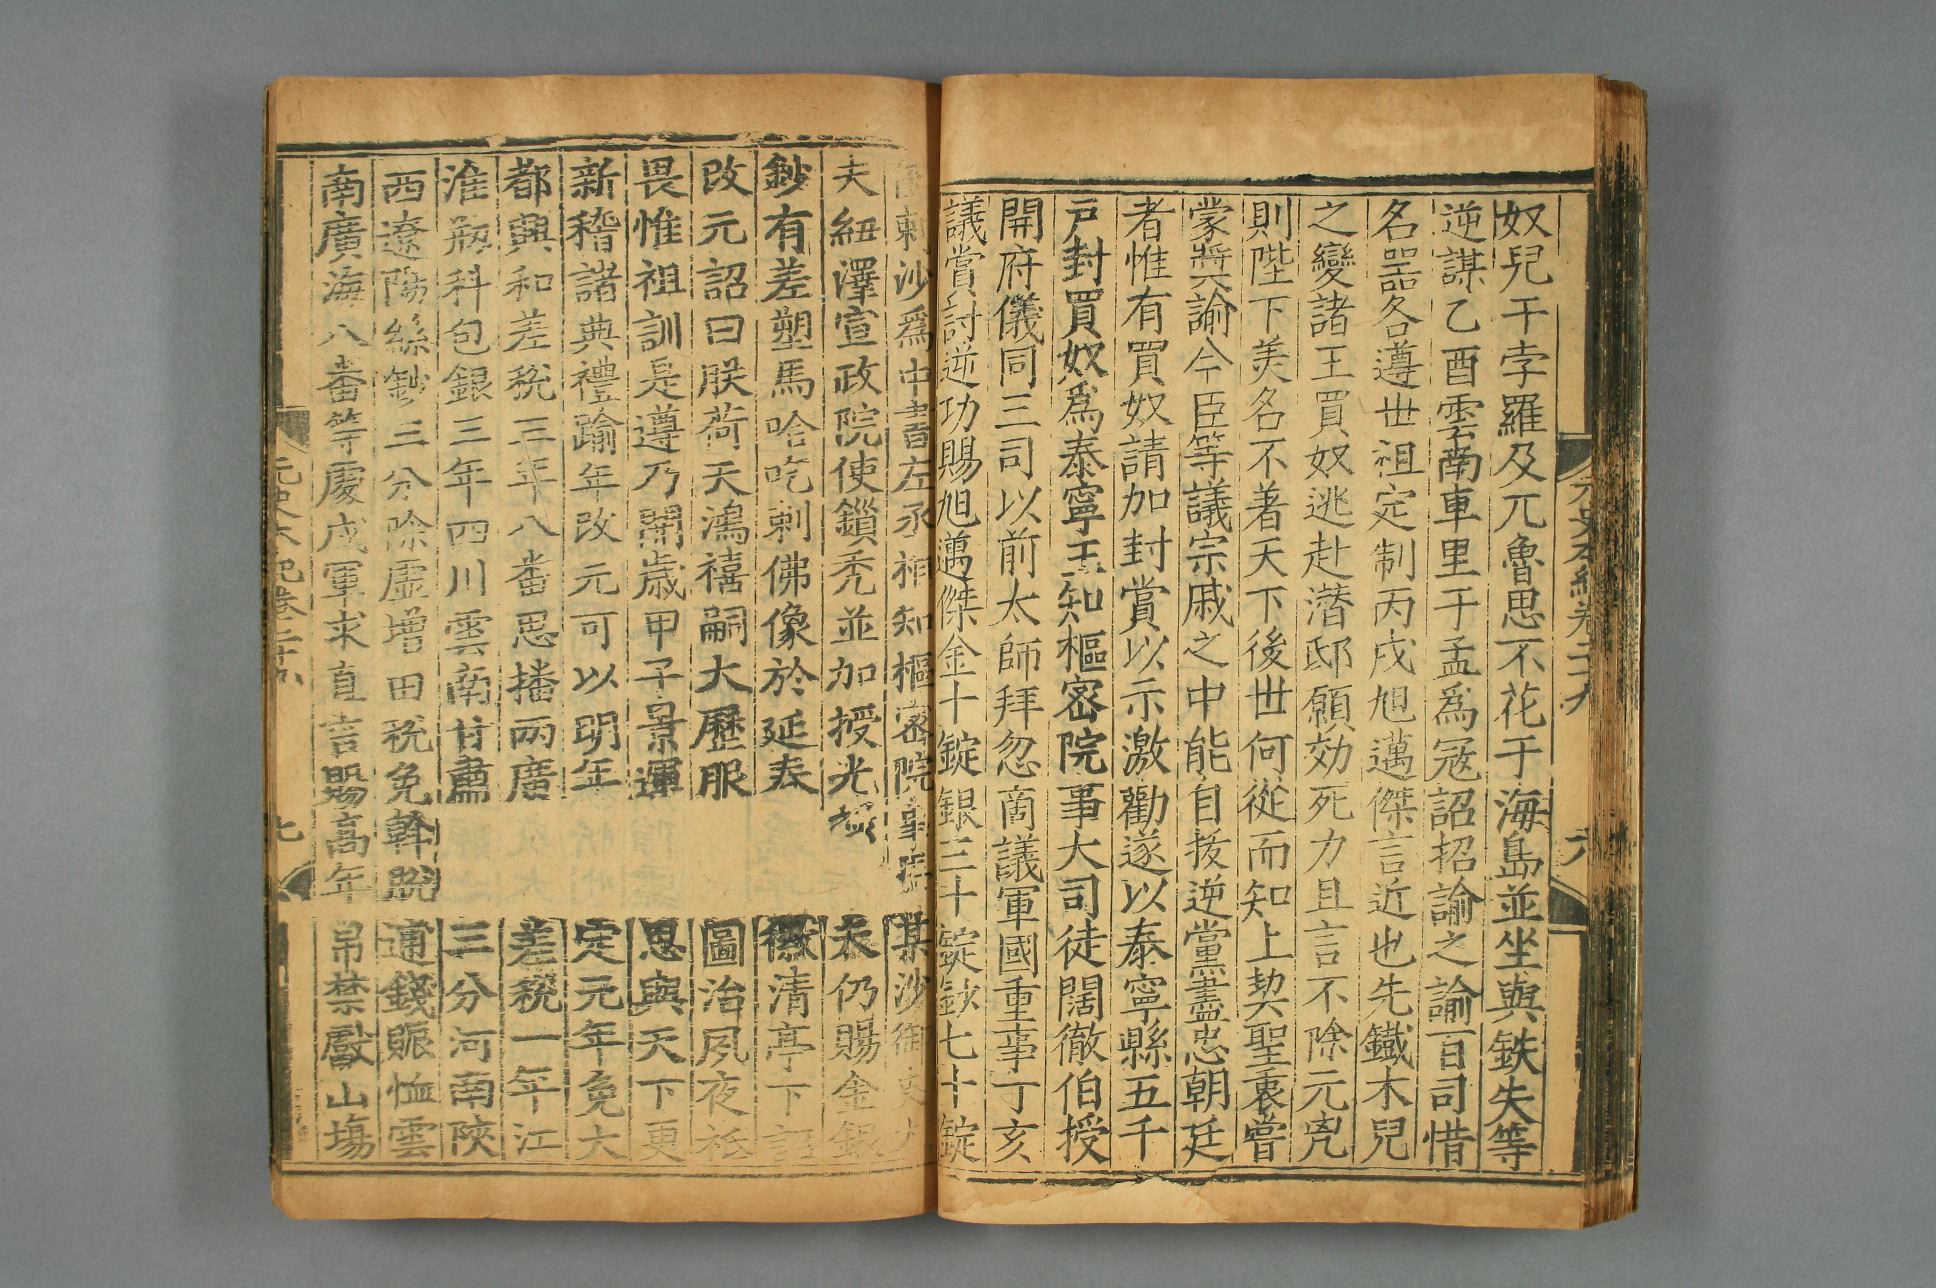 奴兒干孛羅及兀魯思不花于海島並坐與鉄失等
逆謀乙酉雲南車里于孟爲冦詔招諭之諭百司惜
名器各遵世祖定制丙戌旭邁傑言近也先鐵木兒
之變諸王買奴逃赴潛邸願効死力且言不除元兇
則陛下美名不著天下後世何從而知上契聖衷嘗
蒙奬諭今臣等議宗戚之中能自拔逆黨盡忠朝廷
者惟有買奴請加封賞以示激勸遂以泰寧縣五千
戸封買奴爲泰寧王知樞密院事大司徒闊徹伯授
開府儀同三司以前太師拜忽商議軍國重事丁亥
議賞討逆功賜旭邁傑金十錠銀三十錠鈔七十錠
剌沙爲中書左丞相知樞密院事
夫紐澤宣政院使鎖禿並加授光 夫仍賜金銀
鈔有差塑馬哈吃剌佛像於延春 徽清亭下詔
改元詔曰朕荷天鴻禧嗣大歷服 圖治夙夜祗
畏惟祖訓是遵乃開歲甲子景運 思與天下更
新稽諸典禮踰年改元可以明年 定元年免大
都興和差稅三年八番思播兩廣 差稅一年江
淮剏科包銀三年四川雲南甘肅 三分河南陝
西遼陽絲鈔三分除虛增田稅免斡脫 逋錢賑恤雲
南廣海八番等處戍軍求直言賜高年 帛禁獻山場
元史本紀卷二十九 六
元史本紀卷二十九 七